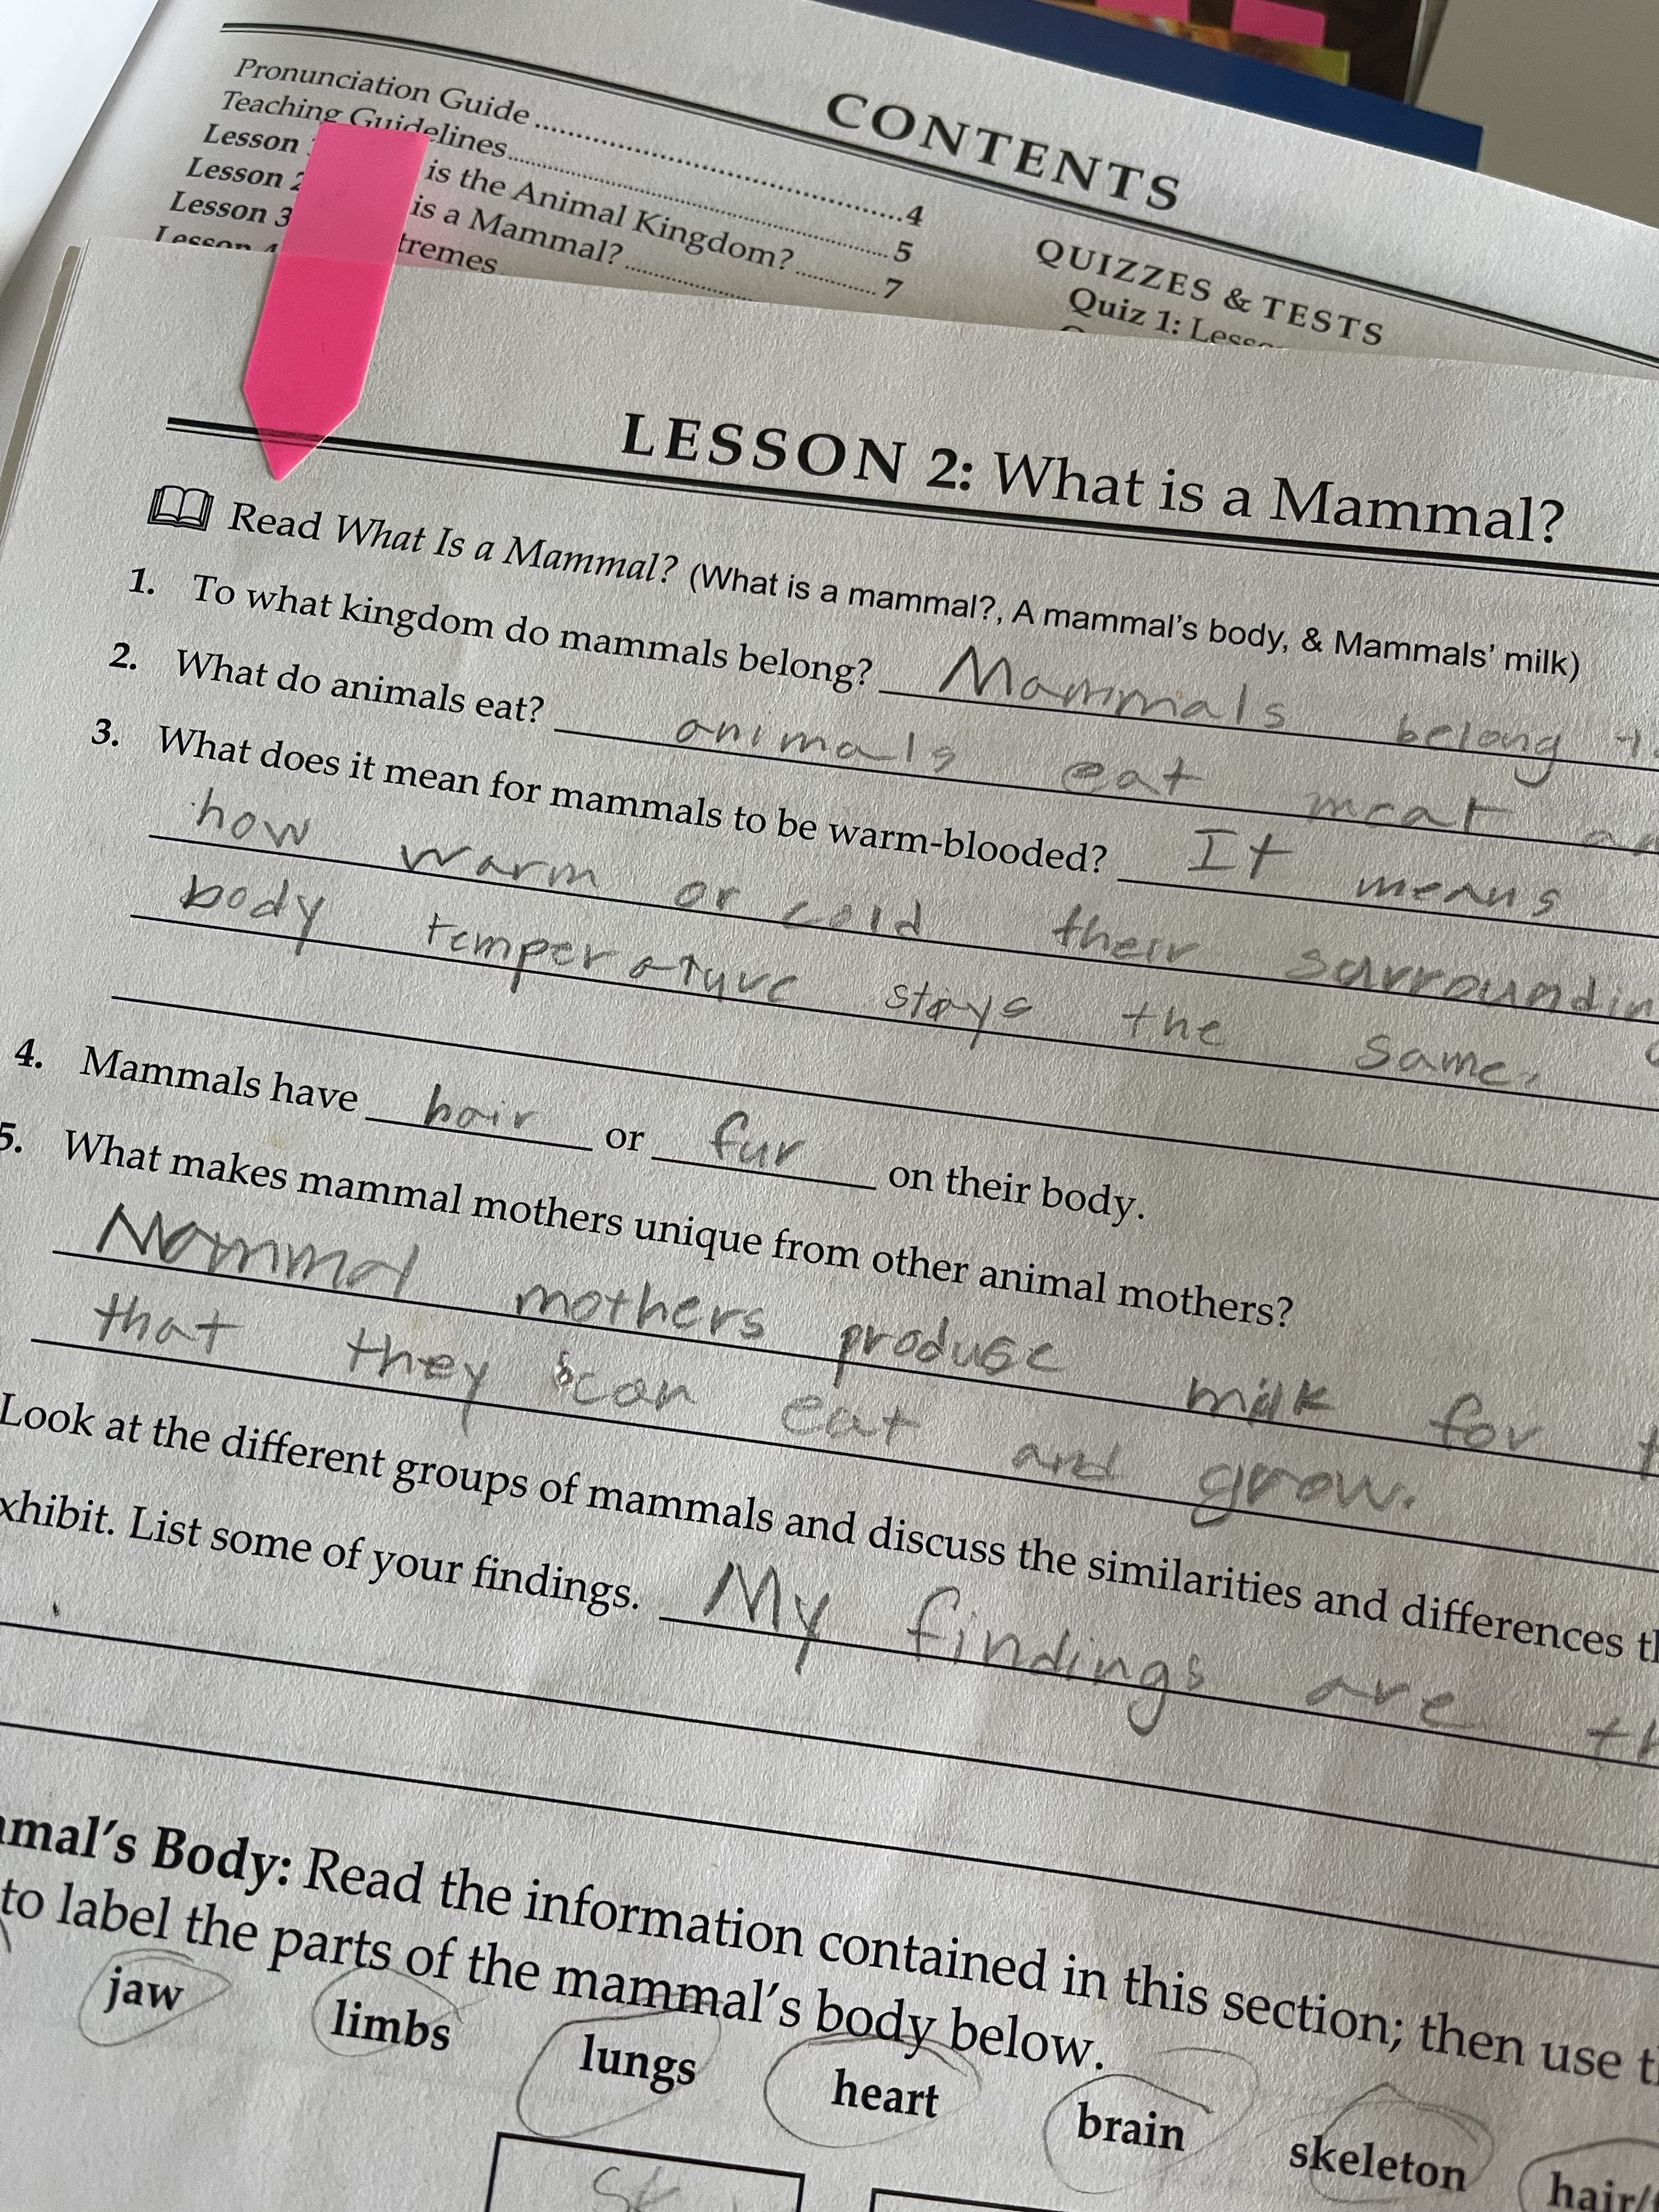 CONTENTS
Pronunciation Guide ........ 4
Teaching Guidelines ........ 5
Lesson is the Animal Kingdom? ........ 7
Lesson 2 is a Mammal? ........
Lesson 3 tremes
Lesson 4
QUIZZES & TESTS
Quiz 1: Lesso
LESSON 2: What is a Mammal?
Read What Is a Mammal? (What is a mammal?, A mammal's body, & Mammals' milk)
1. To what kingdom do mammals belong? Mammals belong
2. What do animals eat? animals eat meat
3. What does it mean for mammals to be warm-blooded? It means
how warm or cold their surroundin
body temperature stays the same.
4. Mammals have hair or fur on their body.
5. What makes mammal mothers unique from other animal mothers?
Mammal mothers produse milk for
that they can eat and grow.
Look at the different groups of mammals and discuss the similarities and differences th
xhibit. List some of your findings. My findings are th
mmal's Body: Read the information contained in this section; then use th
to label the parts of the mammal's body below.
jaw limbs lungs heart brain skeleton hair/
Sk